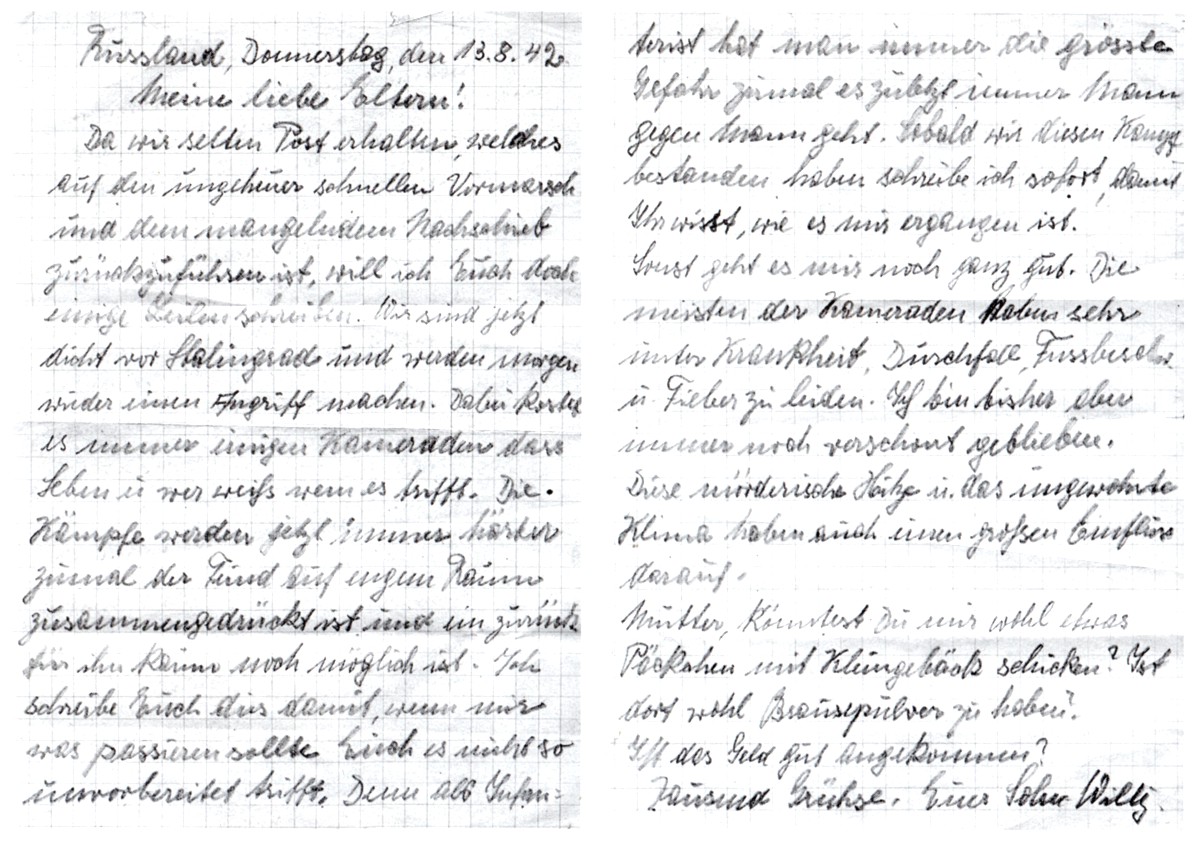 Russland, Donnerstag, den 13.8.42
Meine liebe Eltern!
Da wir selten Post erhalten, welches
auf den ungeheuer schnellen Vormarsch
und dem mangelndem Nachschub
zurückzuführen ist, will ich Euch doch
einige Zeilen schreiben. Wir sind jetzt
dicht vor Stalingrad und werden morgen
wieder einen Angriff machen. Dabei kostet
es immer einigen Kameraden dass
Leben u wer weiß wem es trifft. Die
Kämpfe werden jetzt immer härter
zumal der Feind auf engem Raum
zusammengedrückt ist und ein zurück
für ihn kaum noch möglich ist. Ich
schreibe Euch dies damit, wenn mir
was passieren sollte Euch es nicht so
unvorbereitet trifft. Denn als Infan-
terist hat man immer die grösste
Gefahr zumal es zuletzt immer Mann
gegen Mann geht. Sobald wir diesen Kampf
bestanden haben schreibe ich sofort, damit
Ihr wisst, wie es mir ergangen ist.
Sonst geht es mir noch ganz gut. Die
meisten der Kameraden haben sehr
unter Krankheit, Durchfall, Fussbeschw.
u. Fieber zu leiden. Ich bin bisher aber
immer noch verschont geblieben.
Diese mörderische Hitze u. das ungewohnte
Klima haben auch einen großen Einfluss
darauf.
Mutter, Könntest Du mir wohl etwas
Päckchen mit Kleingebäck schicken? Ist
dort wohl Brausepulver zu haben?
Ist das Geld gut angekommen?
Tausend Grühse. Euer Sohn Willy.